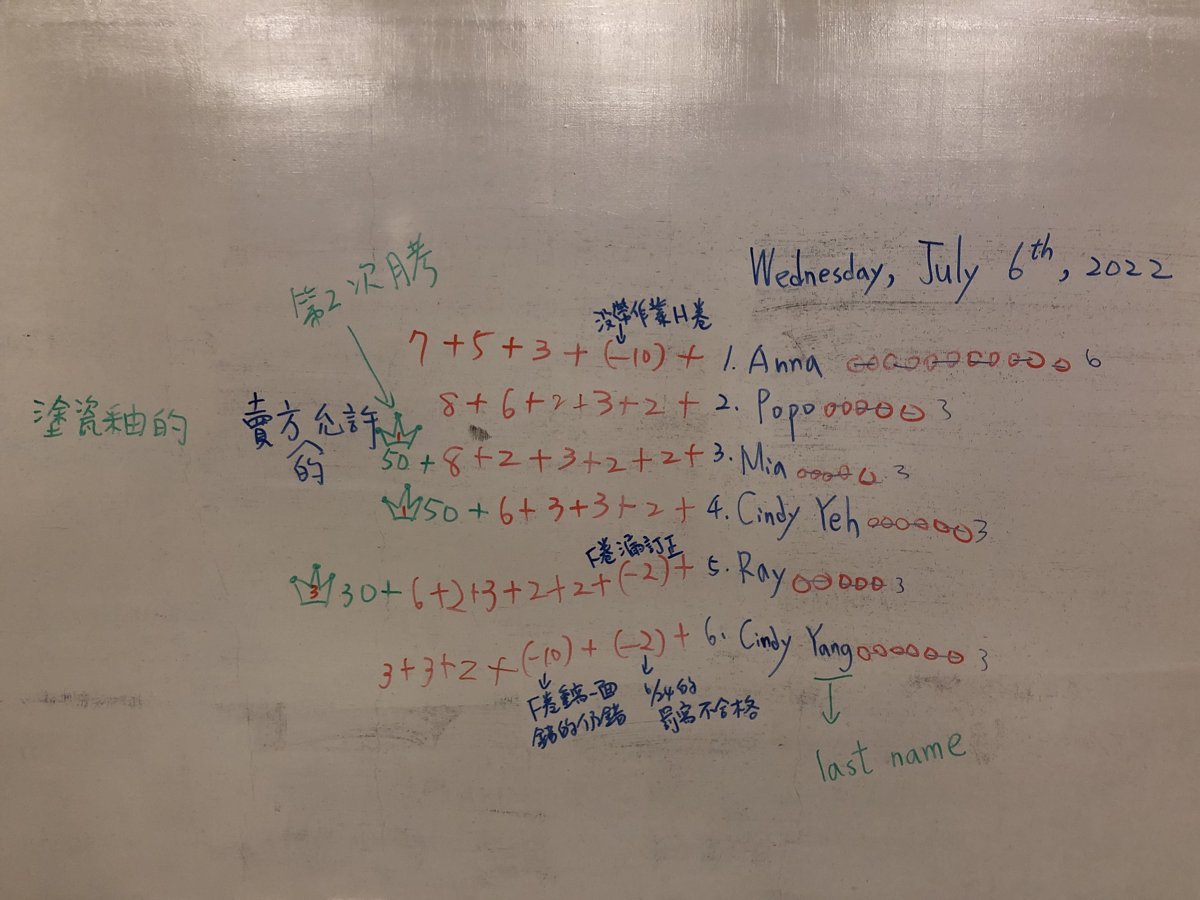 Wednesday, July 6th, 2022
第2次月考
沒帶作業H卷
7+5+3+(-10)+ 1. Anna 6
塗瓷釉的
賣方允許
的
8+6+2+3+2+ 2. Popo 3
1 50+8+2+3+2+2+ 3. Mia 3
1 50+6+3+3+2+ 4. Cindy Yeh 3
F卷漏訂正
3 30+6+2+3+2+2+(-2)+ 5. Ray 3
3+3+2+(-10)+(-2)+ 6. Cindy Yang 3
F卷重寫一面
錯的仍錯
6/24的
罰寫不合格
last name